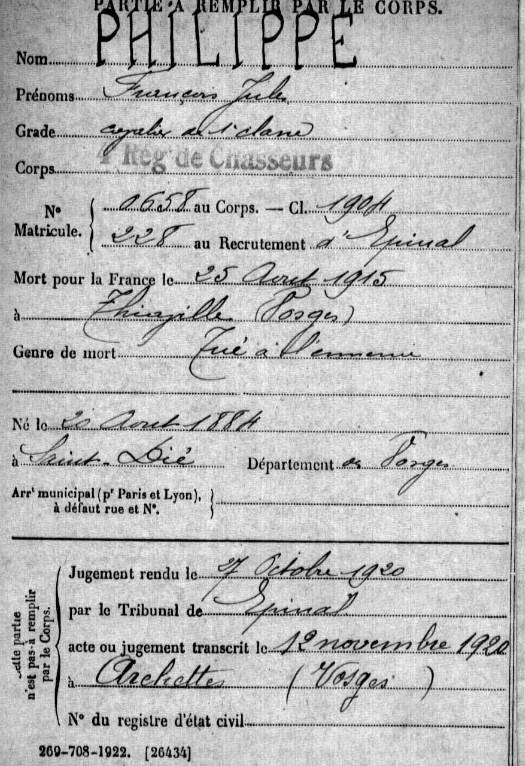 PARTIE À REMPLIR PAR LE CORPS.
Nom PHILIPPE
Prénoms François Jules
Grade cavalier de 1e classe
Corps 4e Rég' de Chasseurs
N° Matricule. 0658 au Corps. — Cl. 1904
228 au Recrutement d'Epinal
Mort pour la France le 25 Aout 1915
à (Vosges)
Genre de mort Tué à l'ennemi
Né le 20 Aout 1884
à Saint-Dié Département des Vosges
Arrt municipal (pr Paris et Lyon),
à défaut rue et N°.
Cette partie
n'est pas à remplir
par le Corps.
Jugement rendu le 27 Octobre 1920
par le Tribunal de Epinal
acte ou jugement transcrit le 12 novembre 1920
à Archettes (Vosges)
N° du registre d'état civil
269-708-1922. [26434]